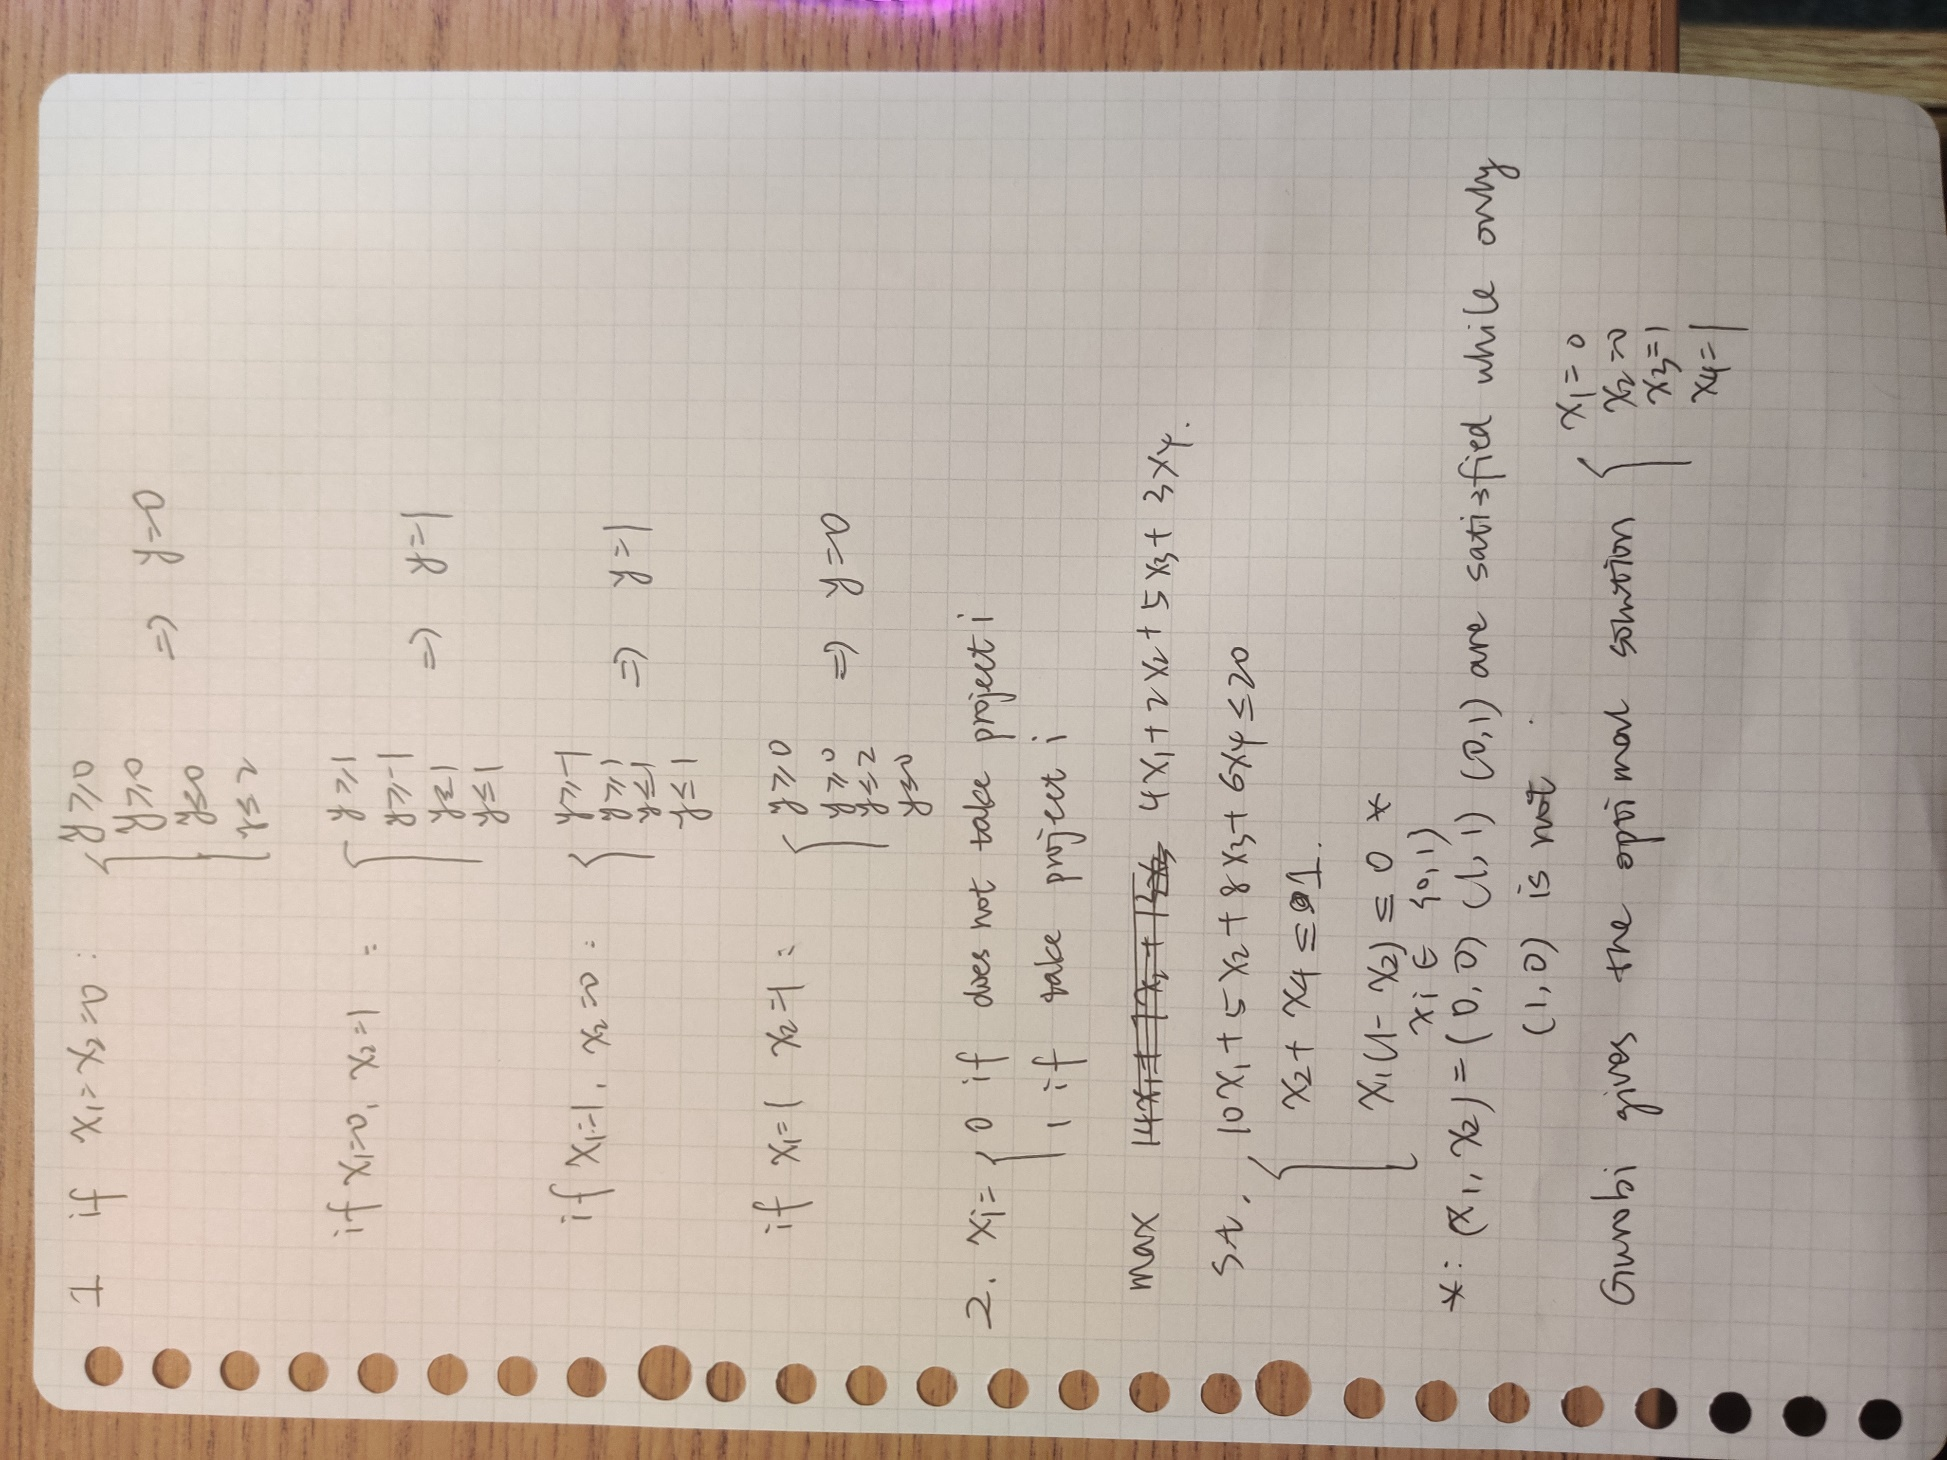 1 if x₁=x₂=0: { y≥0
y≥0
y≤0
y≤2 ⇒ y=0
if x₁=0, x₂=1: { y≥1
y≥-1
y≤1
y≤1 ⇒ y=1
if x₁=1, x₂=0: { y≥-1
y≥1
y≤1
y≤1 ⇒ y=1
if x₁=1 x₂=1: { y≥0
y≥0
y≤2
y≤0 ⇒ y=0
2. xi= { 0 if does not take project i
1 if take project i
max 4x₁+2x₂+5x₃+3x₄.
s.t. { 10x₁+5x₂+8x₃+6x₄≤20
x₂+x₄≤1.
x₁(1-x₂)≤0 *
xi∈{0,1}
*: (x₁,x₂)=(0,0) (1,1) (0,1) are satisfied while only
(1,0) is not.
Gurobi gives the optimal solution { x₁=0
x₂=0
x₃=1
x₄=1